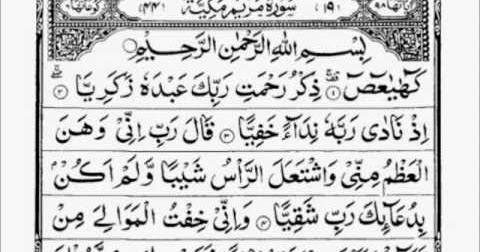 اٰیاتها ۹۸ (۱۹) سُوْرَةُ مَرْيَمَ مَكِّيَّةٌ (۴۴) رکوعاتها ۶
بِسْمِ اللّٰهِ الرَّحْمٰنِ الرَّحِيْمِ
كٓهٰيٰعٓصٓ ۝۱ ذِكْرُ رَحْمَتِ رَبِّكَ عَبْدَهٗ زَكَرِيَّا ۝۲
اِذْ نَادٰى رَبَّهٗ نِدَآءً خَفِيًّا ۝۳ قَالَ رَبِّ اِنِّيْ وَهَنَ
الْعَظْمُ مِنِّيْ وَاشْتَعَلَ الرَّاْسُ شَيْبًا وَّلَمْ اَكُنْۢ
بِدُعَآئِكَ رَبِّ شَقِيًّا ۝۴ وَاِنِّيْ خِفْتُ الْمَوَالِيَ مِنْ